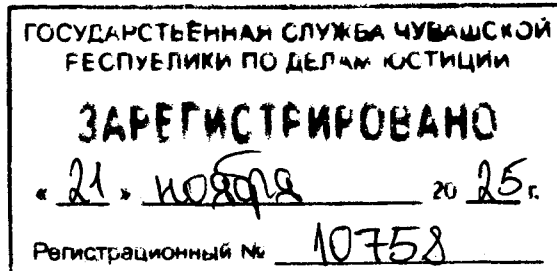 ГОСУДАРСТВЕННАЯ СЛУЖБА ЧУВАШСКОЙ
РЕСПУБЛИКИ ПО ДЕЛАМ ЮСТИЦИИ
ЗАРЕГИСТРИРОВАНО
« 21 » ноября 20 25 г.
Регистрационный № 10758